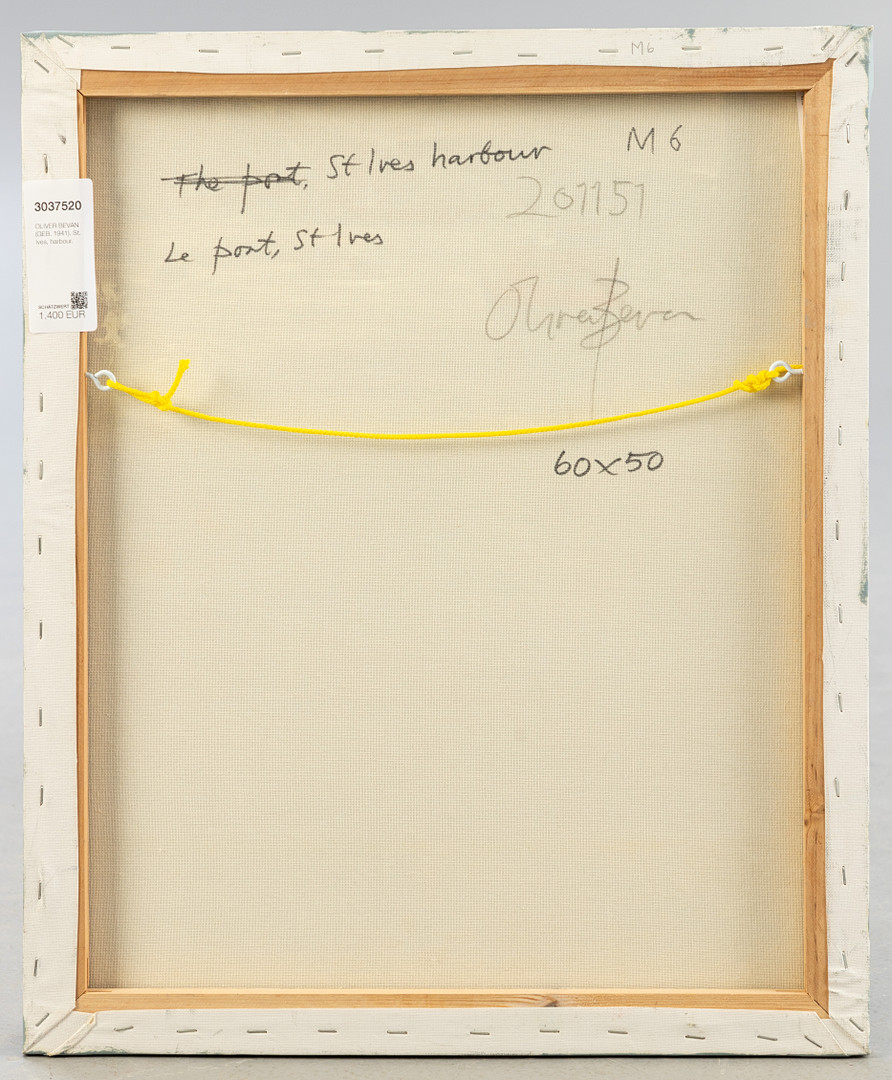 M6
The port, St Ives harbour
M 6
201151
Le port, St Ives
Oliver Bevan
60x50
3037520
OLIVER BEVAN
(GEB. 1941), St.
Ives, harbour.
SCHÄTZWERT
1.400 EUR